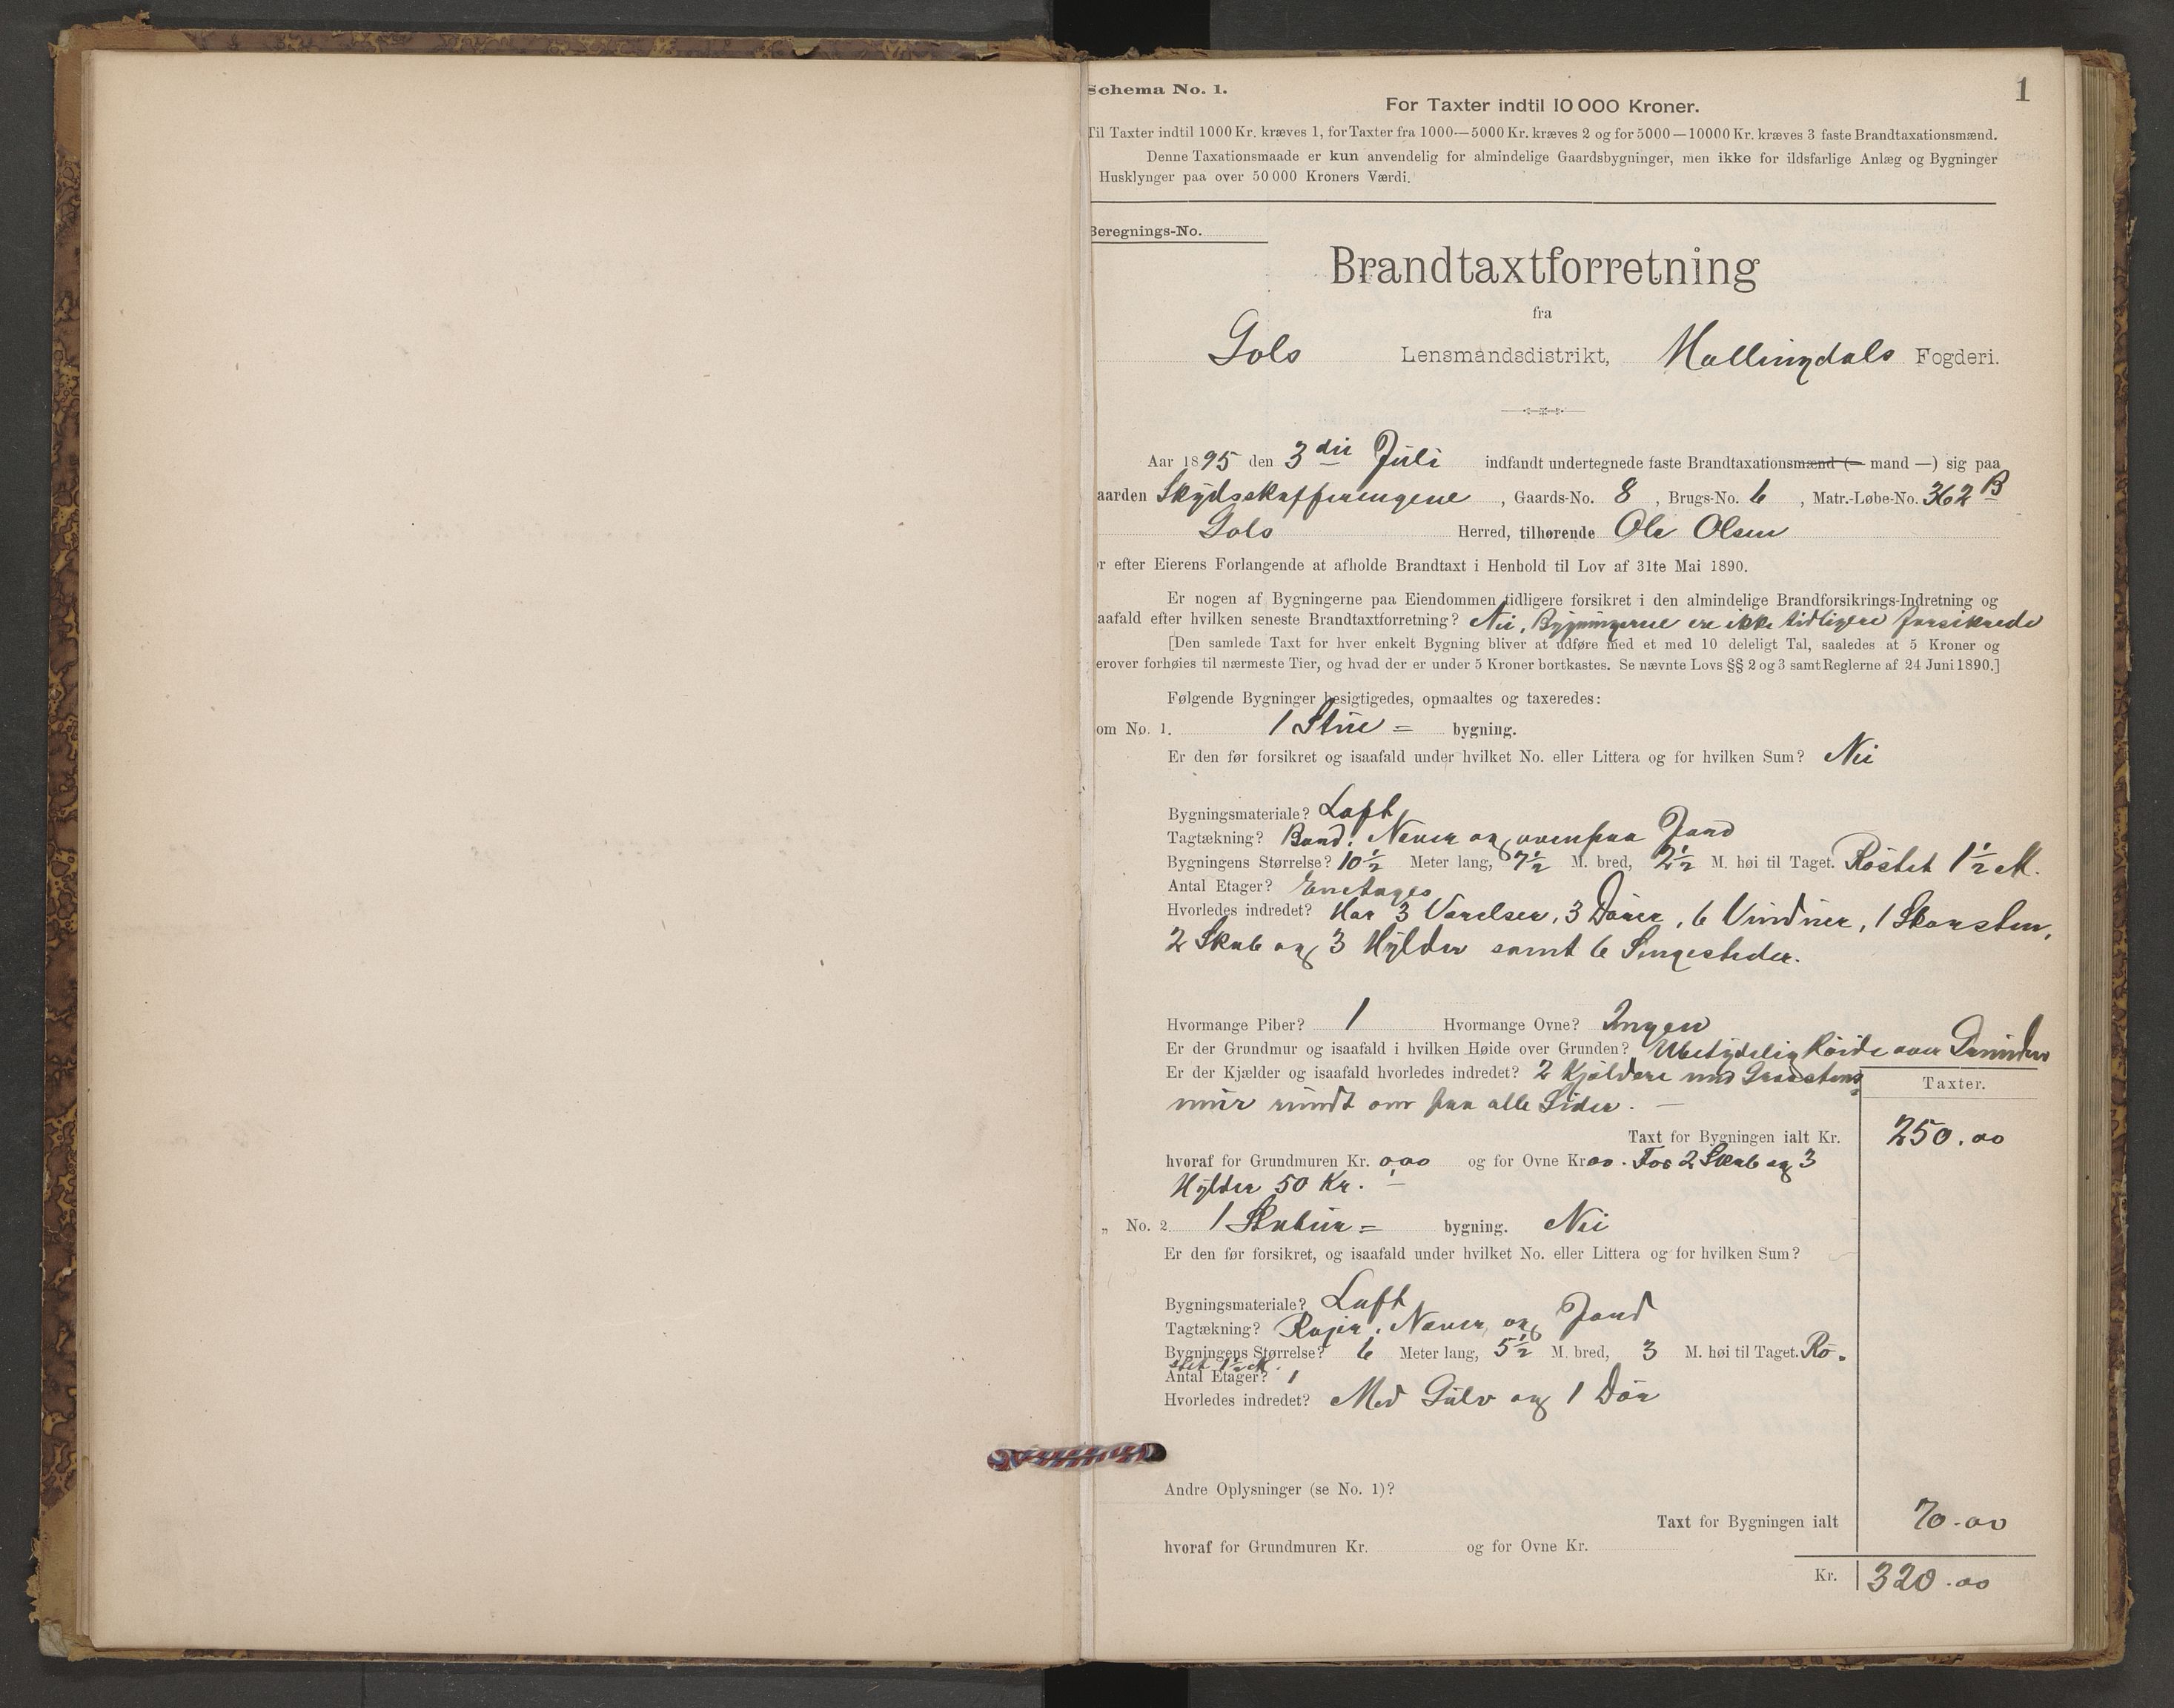 1
Schema No. 1.
For Taxter indtil 10 000 Kroner.
Til Taxter indtil 1000 Kr. kræves 1, for Taxter fra 1000—5000 Kr. kræves 2 og for 5000—10000 Kr. kræves 3 faste Brandtaxationsmænd.
Denne Taxationsmaade er kun anvendelig for almindelige Gaardsbygninger, men ikke for ildsfarlige Anlæg og Bygninger
Husklynger paa over 50 000 Kroners Værdi.
Beregnings-No.
Brandtaxtforretning
fra
Gols Lensmandsdistrikt, Hallingdals Fogderi.
Aar 1895 den 3die Juli indfandt undertegnede faste Brandtaxationsmænd (— mand —) sig paa
aarden Skydsskafferengene, Gaards-No. 8, Brugs-No. 6, Matr.-Løbe-No. 362 B
Gols Herred, tilhørende Ole Olsen
or efter Eierens Forlangende at afholde Brandtaxt i Henhold til Lov af 31te Mai 1890.
Er nogen af Bygningerne paa Eiendommen tidligere forsikret i den almindelige Brandforsikrings-Indretning og
aafald efter hvilken seneste Brandtaxtforretning? Nei, Bygningerne ere ikke tidligere forsikrede
[Den samlede Taxt for hver enkelt Bygning bliver at udføre med et med 10 deleligt Tal, saaledes at 5 Kroner og
erover forhøies til nærmeste Tier, og hvad der er under 5 Kroner bortkastes. Se nævnte Lovs §§ 2 og 3 samt Reglerne af 24 Juni 1890.]
Følgende Bygninger besigtigedes, opmaaltes og taxeredes:
om No. 1. 1 Stue = bygning.
Er den før forsikret og isaafald under hvilket No. eller Littera og for hvilken Sum? Nei
Bygningsmateriale? Laft
Tagtækning? Bord, Never og ovenpaa Jord
Bygningens Størrelse? 10 1/2 Meter lang, 7 1/2 M. bred, 2 1/2 M. høi til Taget. Röstet 1 1/2 M.
Antal Etager? Enetages
Hvorledes indredet? Har 3 Værelser, 3 Dörer, 6 Vinduer, 1 Skorsten,
2 Skab og 3 Hylder samt 6 Sengesteder.
Hvormange Piber? 1 Hvormange Ovne? Ingen
Er der Grundmur og isaafald i hvilken Høide over Grunden? Ubetydelig Höide over Grunden
Er der Kjælder og isaafald hvorledes indredet? 2 Kjældere med Graastens
mur rundt om paa alle Sider. —
Taxter.
Taxt for Bygningen ialt Kr. 250.00
hvoraf for Grundmuren Kr. 0,00 og for Ovne Kr 00. For 2 Skab og 3
Hylder 50 Kr. —
„ No. 2. 1 Stabur = bygning. Nei
Er den før forsikret, og isaafald under hvilket No. eller Littera og for hvilken Sum?
Bygningsmateriale? Laft
Tagtækning? Never og Jord
Bygningens Størrelse? 6 Meter lang, 5 1/2 M. bred, 3 M. høi til Taget. Rö-
stet 1 1/2 M.
Antal Etager? 1
Hvorledes indredet? Med Gulv og 1 Dör
Andre Oplysninger (se No. 1)?
Taxt for Bygningen ialt 70.00
hvoraf for Grundmuren Kr. og for Ovne Kr.
Kr. 320.00